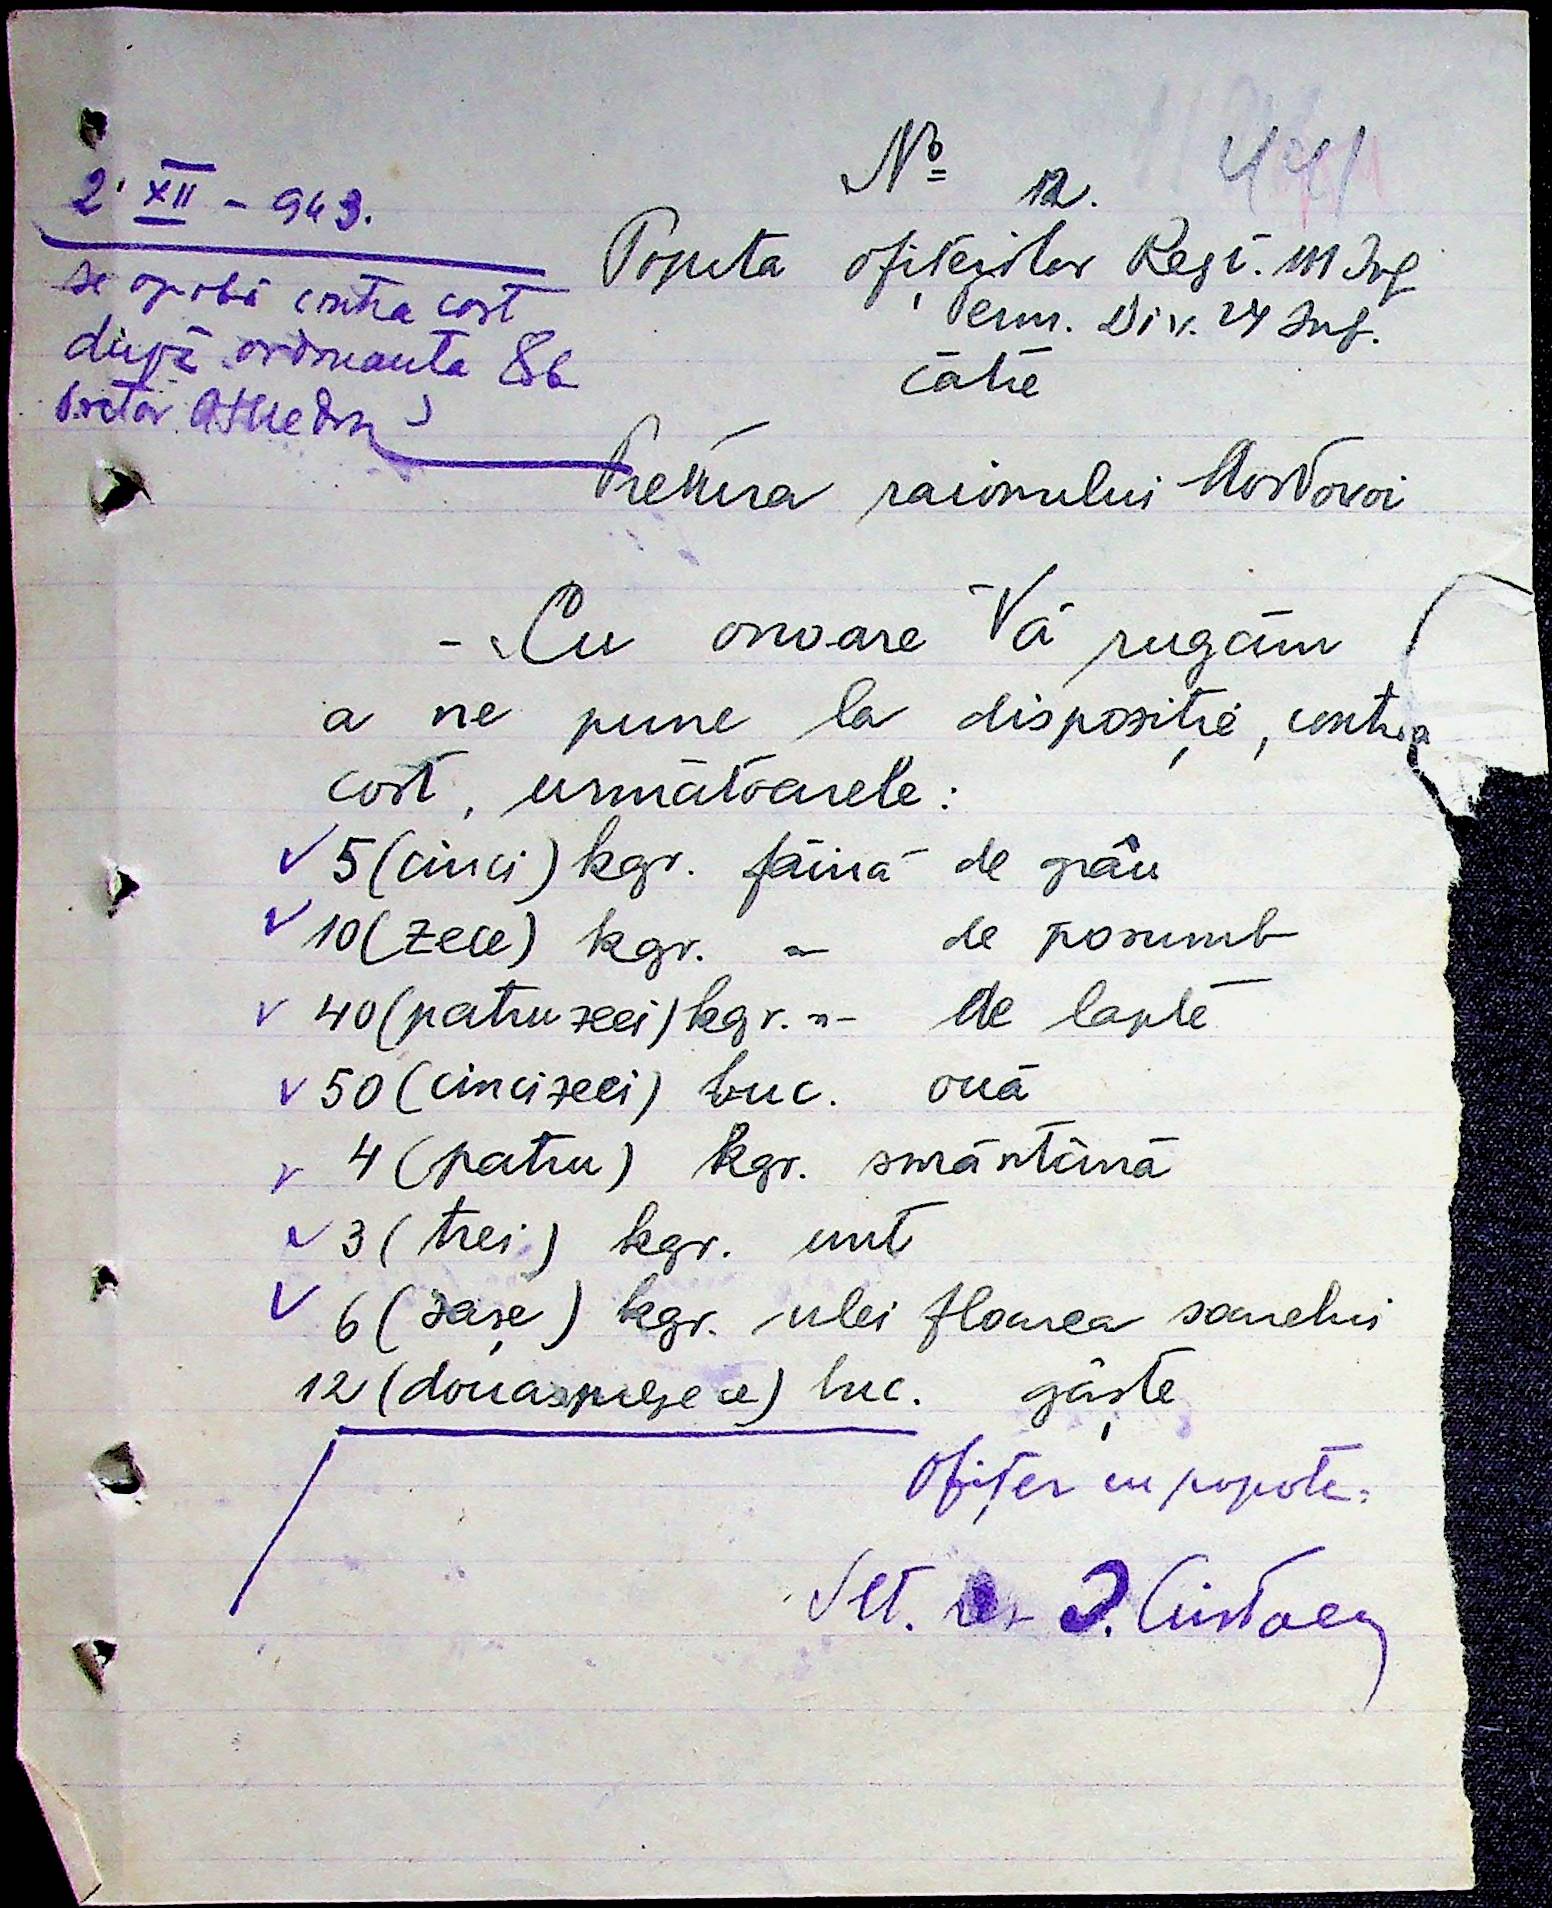 441
№ 12.
2 XII - 943.
se aprobă contra cost
după ordonanta 86
Pretor
Popota ofițerilor Regt. 111 Inf
Perm. Div. 24 Inf.
către
Prettura raionului Mostovoi
- Cu onoare Vă rugăm
a ne pune la dispoziție, contra
cost, următoarele:
5 (cinci) kgr. făină de grâu
10 (zece) kgr. -"- de porumb
40 (patruzeci) kgr. -"- de lapte
50 (cincizeci) buc. ouă
4 (patru) kgr. smântână
3 (trei) kgr. unt
6 (șase) kgr. ulei floarea soarelui
12 (douasprezece) buc. gâște
Ofițer cu popota.
Slt. I.